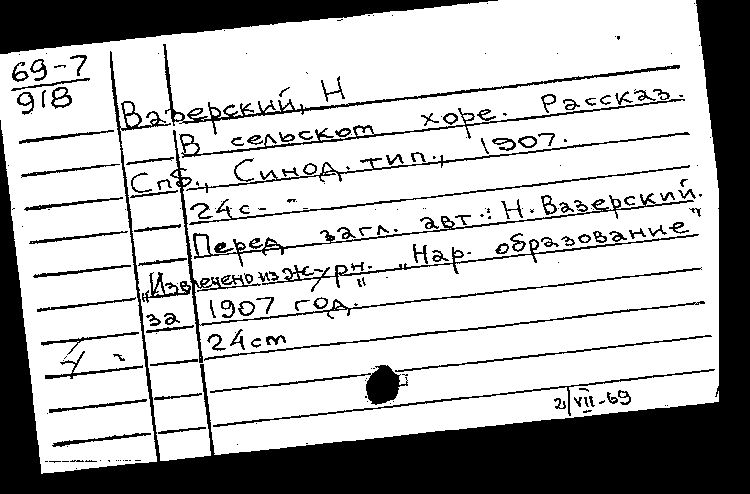 69-7
918
Вазерский, Н
В сельском хоре. Рассказ.
Спб., Синод. тип., 1907.
24 с.
Перед загл. авт.: Н. Вазерский.
"Извлечено из журн. "Нар. образование"
за 1907 год."
24 cm
2/VII-69